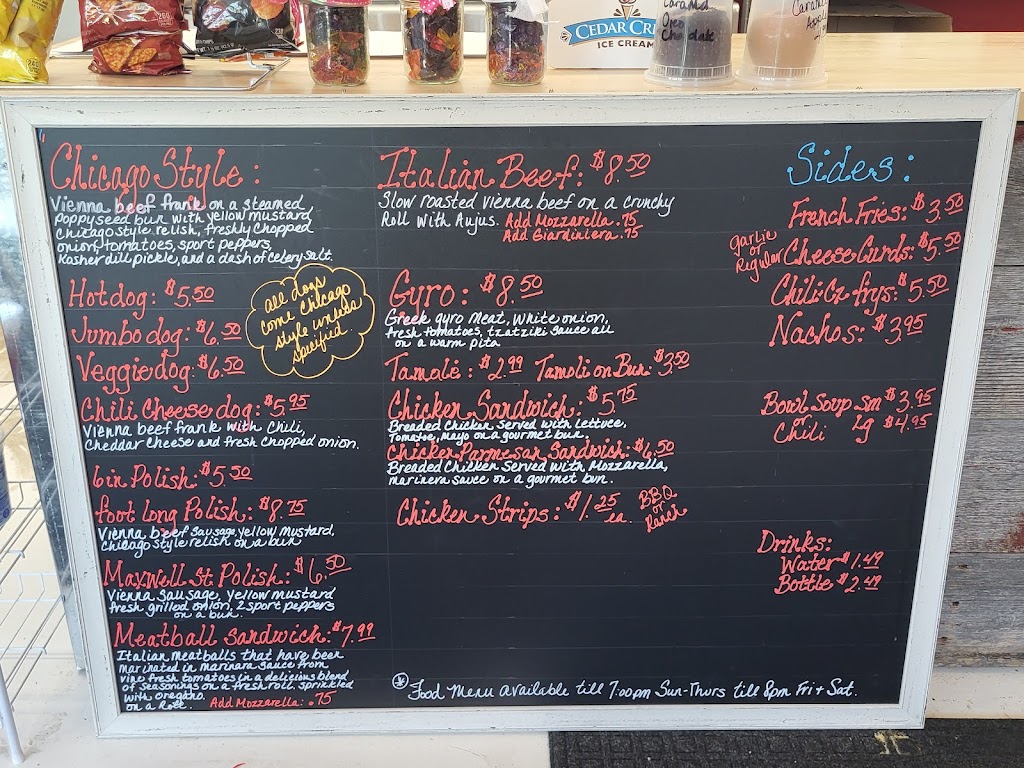 CEDAR CR
ICE CREAM
Caramel
Oreo
Chocolate
Caramel
Apple
Chicago Style:
Vienna beef frank on a steamed
poppyseed bun with yellow mustard
chicago style relish, freshly chopped
onion, tomatoes, sport peppers,
Kosher dill pickle, and a dash of celery salt.
all dogs
come chicago
style unless
specified.
Hot dog: $5.50
Jumbo dog: $6.50
Veggie dog: $6.50
Chili Cheese dog: $5.95
Vienna beef frank with Chili,
Cheddar Cheese and fresh chopped onion.
6in Polish: $5.50
foot long Polish: $8.75
Vienna beef Sausage, yellow mustard,
Chicago Style relish on a bun
Maxwell St Polish: $6.50
Vienna Sausage, yellow mustard
fresh grilled onion, 2 sport peppers
on a bun.
Meatball Sandwich: $7.99
Italian meatballs that have been
marinated in marinara sauce from
vine fresh tomatoes in a delicious blend
of seasonings on a fresh roll sprinkled
with oregano.
on a Roll. Add Mozzarella: .75
Italian Beef: $8.50
Slow roasted vienna beef on a crunchy
Roll With Aujus. Add Mozzarella .75
Add Giardiniera .75
Gyro: $8.50
Greek gyro meat, white onion,
fresh tomatoes, tzatziki sauce all
on a warm pita
Tamale: $2.99 Tamoli on Bun: $3.50
Chicken Sandwich: $5.75
Breaded Chicken Served with Lettuce,
Tomatoe, Mayo on a gourmet bun.
Chicken Parmesan Sandwich: $6.50
Breaded Chicken Served with Mozzarella,
marinera sauce on a gourmet bun.
Chicken Strips: $1.25 ea. BBQ or Ranch
Sides:
French Fries: $3.50
garlic or Regular Cheese Curds: $5.50
Chili Cz frys: $5.50
Nachos: $3.95
Bowl Soup Sm $3.95
or
Chili Lg $4.95
Drinks:
Water $1.49
Bottle $2.49
* Food Menu available till 7:00pm Sun-Thurs till 8pm Fri + Sat.